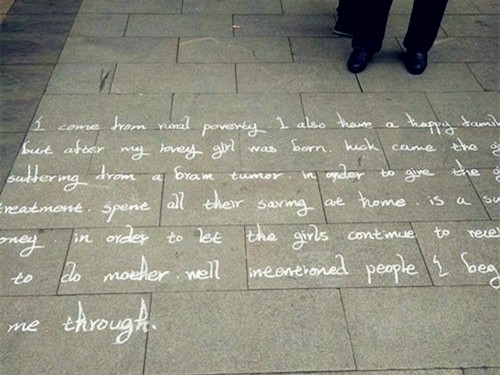 I come from rural poverty I also have a happy famil
but after my lovey girl was born. luck came. the gi
suffering from a brain tumor. in order to give the g
treatment. spent all their saving at home. is a su
oney. in order to let the girls continue to recei
to do mother. well intentioned people I beg
me through.